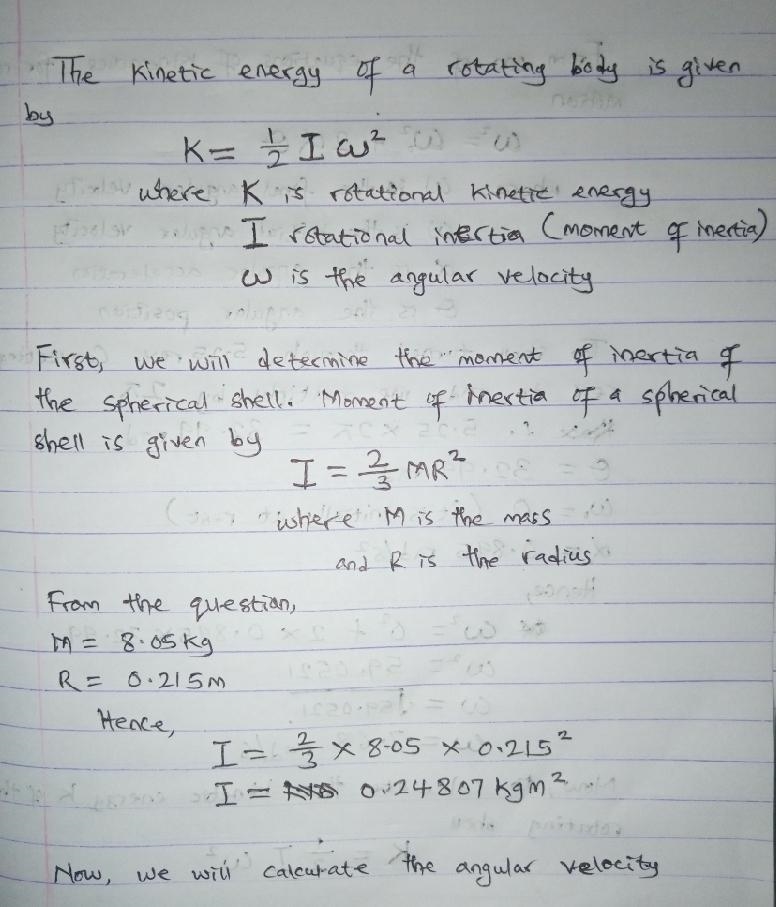 The Kinetic energy of a rotating body is given
by
K = 1/2 I ω²
where K is rotational Kinetic energy
I rotational inertia (moment of inertia)
ω is the angular velocity
First, we will determine the moment of inertia of
the spherical shell. Moment of inertia of a spherical
shell is given by
I = 2/3 MR²
where M is the mass
and R is the radius
From the question,
M = 8.05 kg
R = 0.215 m
Hence,
I = 2/3 × 8.05 × 0.215²
I = 0.24807 kgm²
Now, we will calculate the angular velocity